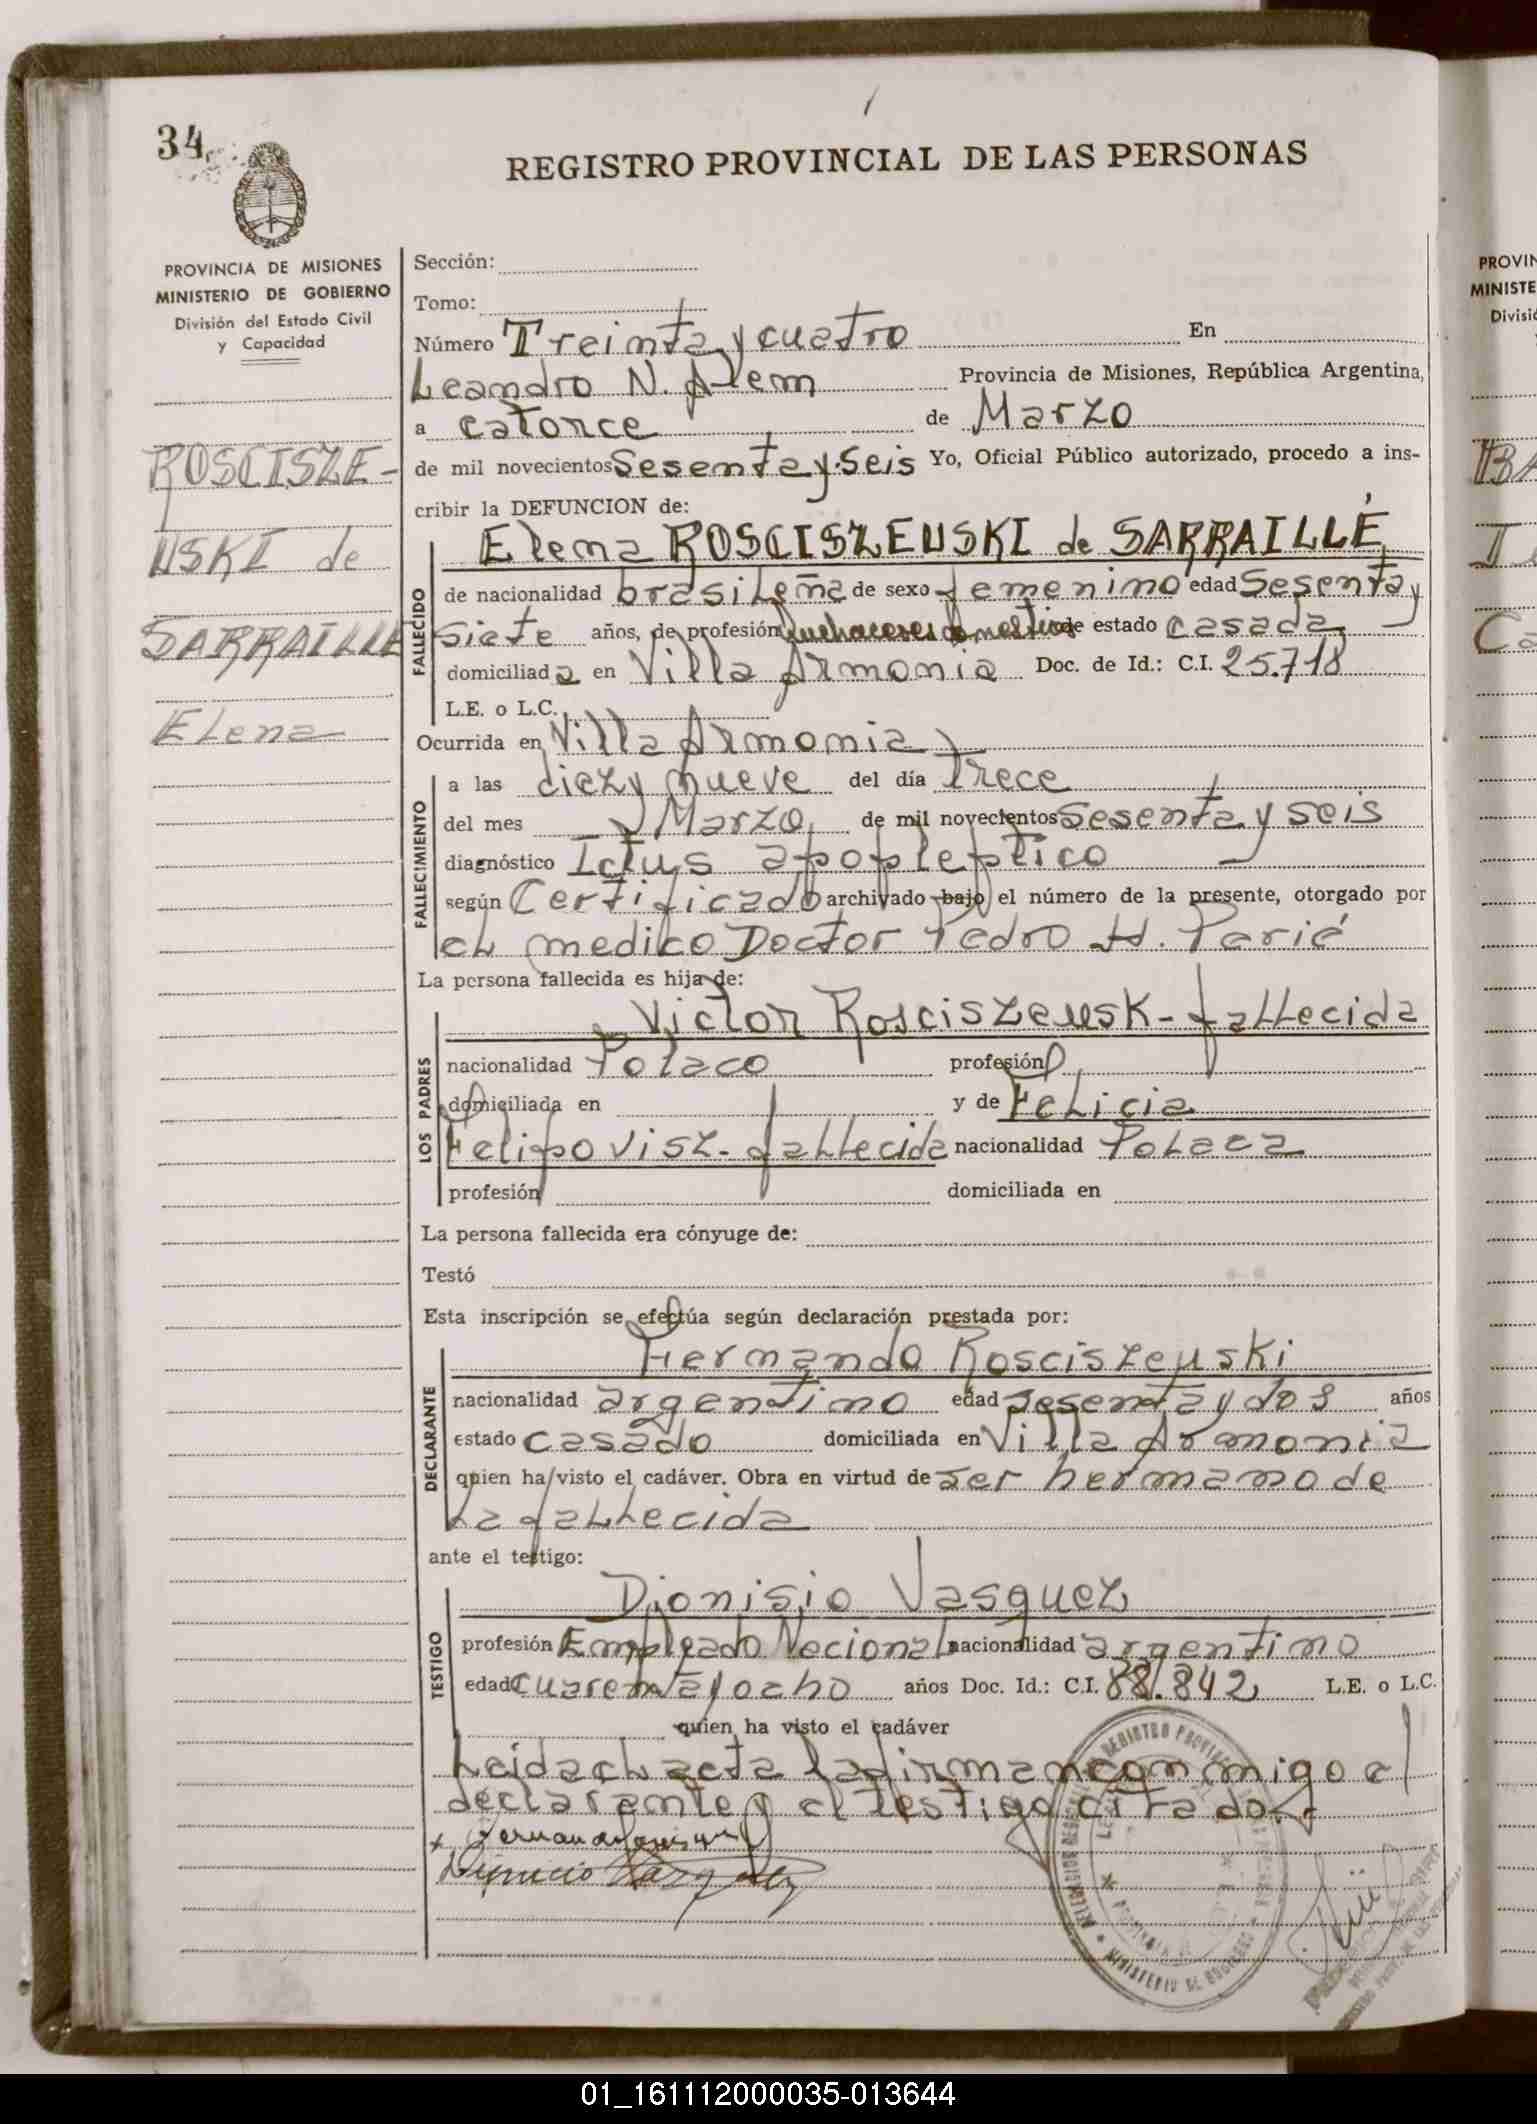 34
REGISTRO PROVINCIAL DE LAS PERSONAS
PROVINCIA DE MISIONES
MINISTERIO DE GOBIERNO
División del Estado Civil
y Capacidad
ROSCISZE-
USKI de
SARRAILLE
Elena
Sección:
Tomo:
Número Treinta y cuatro En
Leandro N. Alem Provincia de Misiones, República Argentina,
a catorce de Marzo
de mil novecientos Sesenta y Seis Yo, Oficial Público autorizado, procedo a ins-
cribir la DEFUNCION de:
FALLECIDO
Elena ROSCISZEUSKI de SARRAILLÉ
de nacionalidad brasileña de sexo femenino edad Sesenta y
Siete años, de profesión Quehaceres domesticos de estado casada
domiciliada en Villa Armonia Doc. de Id.: C.I. 25.718
L.E. o L.C.
Ocurrida en Villa Armonia
FALLECIMIENTO
a las diez y nueve del día Trece
del mes Marzo de mil novecientos Sesenta y seis
diagnóstico Ictus apopleptico
según Certificado archivado bajo el número de la presente, otorgado por
el medico Doctor Pedro H. Parié
La persona fallecida es hija de:
LOS PADRES
Victor Rosciszeusk - fallecida
nacionalidad Polaco profesión
domiciliada en y de Felicia
Felipovisz - fallecida nacionalidad Polaca
profesión domiciliada en
La persona fallecida era cónyuge de:
Testó
Esta inscripción se efectúa según declaración prestada por:
DECLARANTE
Hernando Rosciszeuski
nacionalidad argentino edad sesenta y dos años
estado casado domiciliada en Villa Armonia
quien ha visto el cadáver. Obra en virtud de ser hermano de
la fallecida
ante el testigo:
TESTIGO
Dionisio Vasquez
profesión Empleado Nacional nacionalidad argentino
edad cuarenta y ocho años Doc. Id.: C.I. 88.842 L.E. o L.C.
quien ha visto el cadáver
Leida el acta la firman conmigo el
declarante y el testigo citado.
PROVIN
MINISTE
Divisió
01_161112000035-013644